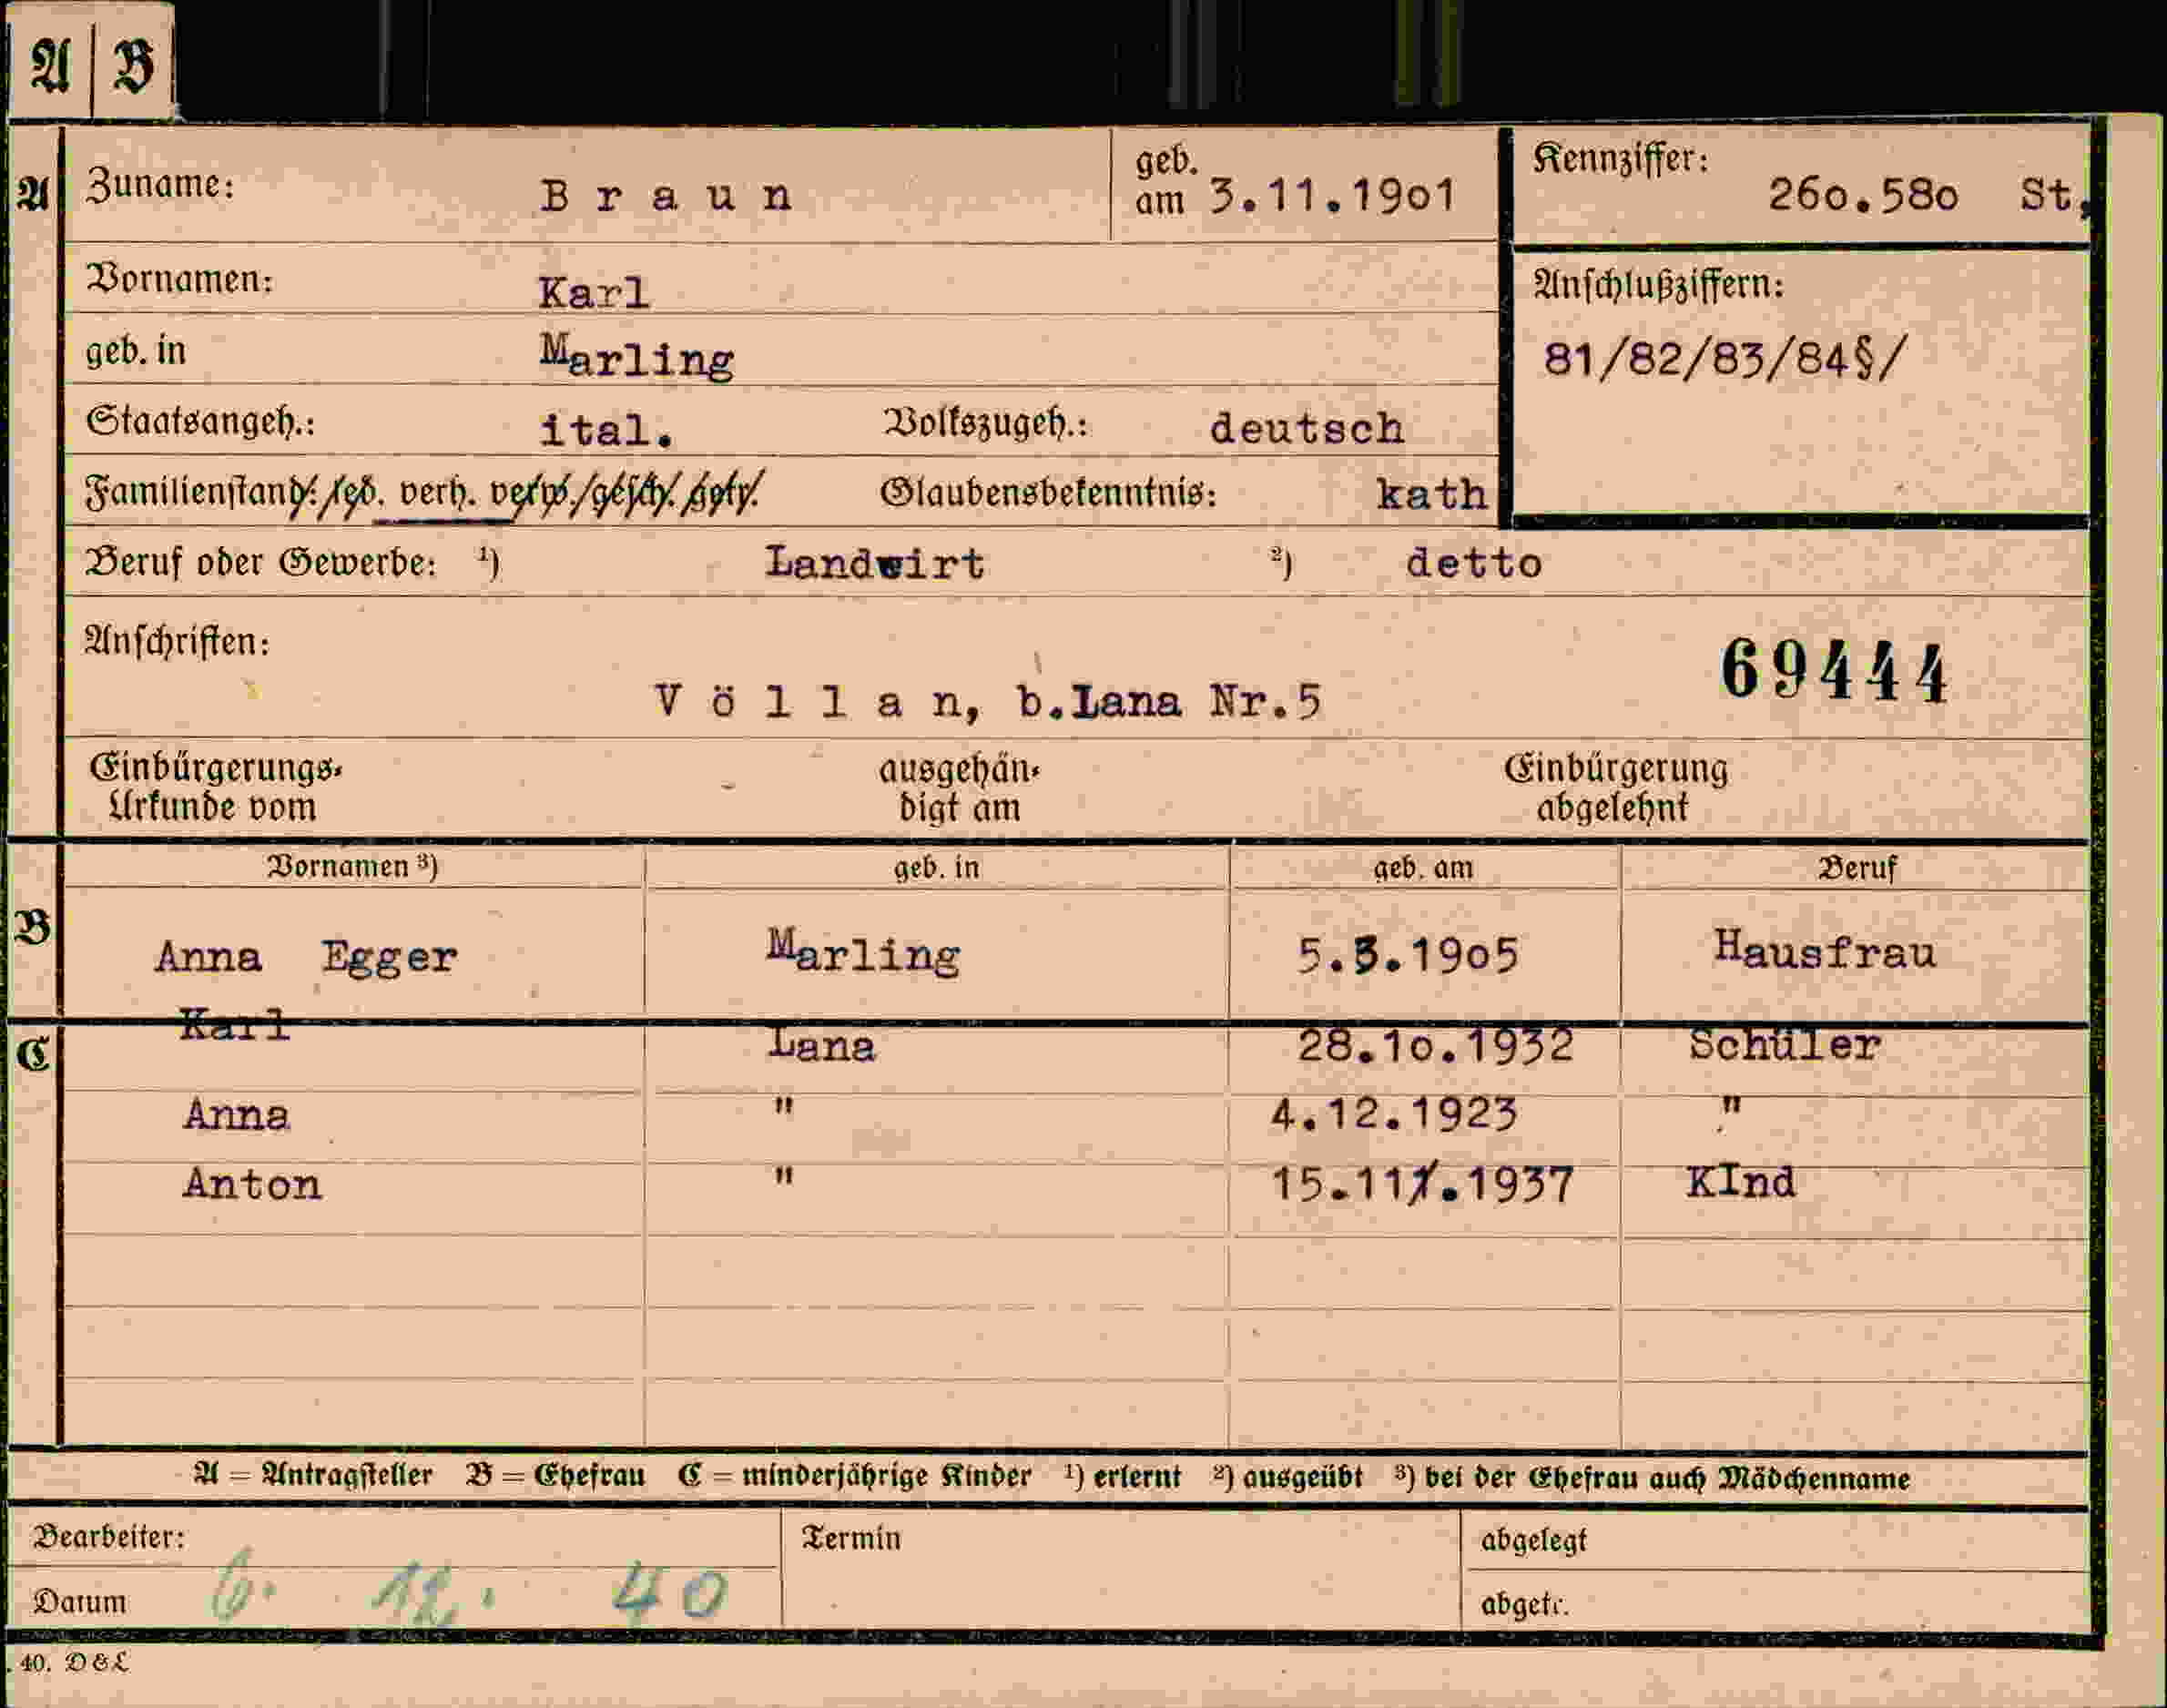 A B
A Zuname: Braun geb. am 3.11.19o1 Kennziffer: 26o.58o St.
Vornamen: Karl Anschlußziffern:
geb. in Marling 81/82/83/84§/
Staatsangeh.: ital. Volkszugeh.: deutsch
Familienstand: led. verh. verw. gesch. getr. Glaubensbekenntnis: kath
Beruf oder Gewerbe: 1) Landwirt 2) detto
Anschriften: 69444
Völlan, b.Lana Nr.5
Einbürgerungs- ausgehän- Einbürgerung
Urkunde vom digt am abgelehnt
Vornamen 3) geb. in geb. am Beruf
B Anna Egger Marling 5.3.19o5 Hausfrau
C Karl Lana 28.1o.1932 Schüler
Anna " 4.12.1923 "
Anton " 15.111.1937 KInd
A = Antragsteller B = Ehefrau C = minderjährige Kinder 1) erlernt 2) ausgeübt 3) bei der Ehefrau auch Mädchenname
Bearbeiter: Termin abgelegt
Datum 6. 12. 40 abgetr.
. 40. D & L